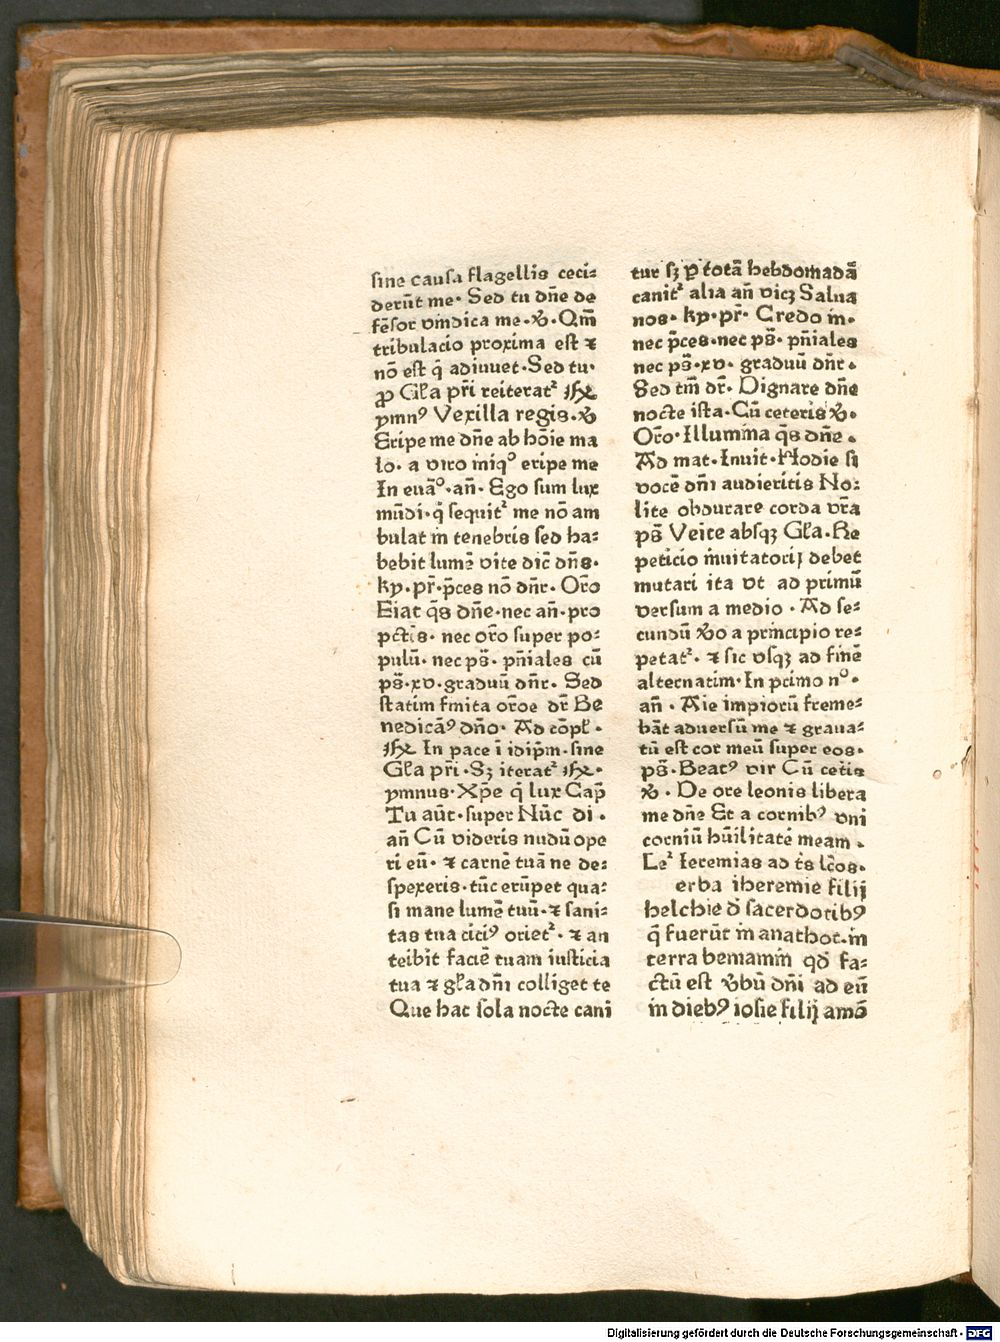 sine causa flagellis ceci⸗
derūt me· Sed tu dn̄e de
fēsor vindica me·℣· Qm̄
tribulacio proxima est ⁊
nō est q̄ adiuuet·Sed tu·
ꝓ Gl̄a pr̄i reiterat᷑
ymnꝰ Vexilla regis·℣
Eripe me dn̄e ab hōie ma
lo· a viro iniqͦ eripe me
In euāͦ·an̄· Ego sum lux
mūdi·q̄ sequit᷑ me nō am
bulat in tenebris sed ha⸗
bebit lumē vite dic̄ dn̄s·
ky·pr̄·p̄ces nō dn̄r· Oro̅
Fiat q̄s dn̄e·nec an̄·pro
pctis· nec oro̅ super po⸗
pulū· nec ps̄· pn̄iales cū
ps̄·xv·graduū dn̄r· Sed
statim finita oro̅e dr̄ Be
nedicāꝰ dn̄o· Ad cōpl̄·
In pace ī idip̄m·sine
Gl̄a pr̄i·Sꝫ iterat᷑
ymnus·Xp̄e q̄ lux Cap̄
Tu aūt·super Nūc di·
an̄ Cū videris nudū ope
ri eū· ⁊ carnē tuā ne de⸗
spexeris·tūc erūpet qua⸗
si mane lumē tuū·⁊ sani⸗
tas tua citiꝰ oriet᷑· ⁊ an
teibit faciē tuam iusticia
tua ⁊ gl̄a dn̄i colliget te
Que hac sola nocte cani
tur sꝫ ꝑ totā hebdomadā
canit᷑ alia an̄ vicꝫ Salua
nos· ky·pr̄· Credo in·
nec p̄ces·nec ps̄· pn̄iales
nec ps̄·xv· graduū dn̄r·
Sed tm̄ dr̄· Dignare dn̄e
nocte ista·Cū ceteris ℣·
Oro̅·Illumina q̄s dn̄e·
Ad mat·Inuit·Hodie si
vocē dn̄i audieritis No⸗
lite obdurare corda vr̄a
ps̄ Veite absqꝫ Gl̄a·Re
peticio inuitatorij debet
mutari ita vt ad primū
versum a medio · Ad se⸗
cundū ℣o a principio re⸗
petat᷑· ⁊ sic vsqꝫ ad finē
alternatim·In primo nͦ·
an̄ · Aie impiorū freme⸗
bāt aduersū me ⁊ graua⸗
tū est cor meū super eos·
ps̄·Beatꝰ vir Cū cetis
℣· De ore leonis libera
me dn̄e Et a cornibꝰ vni
corniū hūilitatē meam·
Le᷑ Ieremias ad
erba iheremie filij
helchie d̄ sacerdotibꝰ
q̄ fuerūt in anathot·in
terra beniamin qd̄ fa⸗
ctū est ℣bū dn̄i ad eū
in diebꝰ iosie filij amō
Digitalisierung gefördert durch die Deutsche Forschungsgemeinschaft - DFG